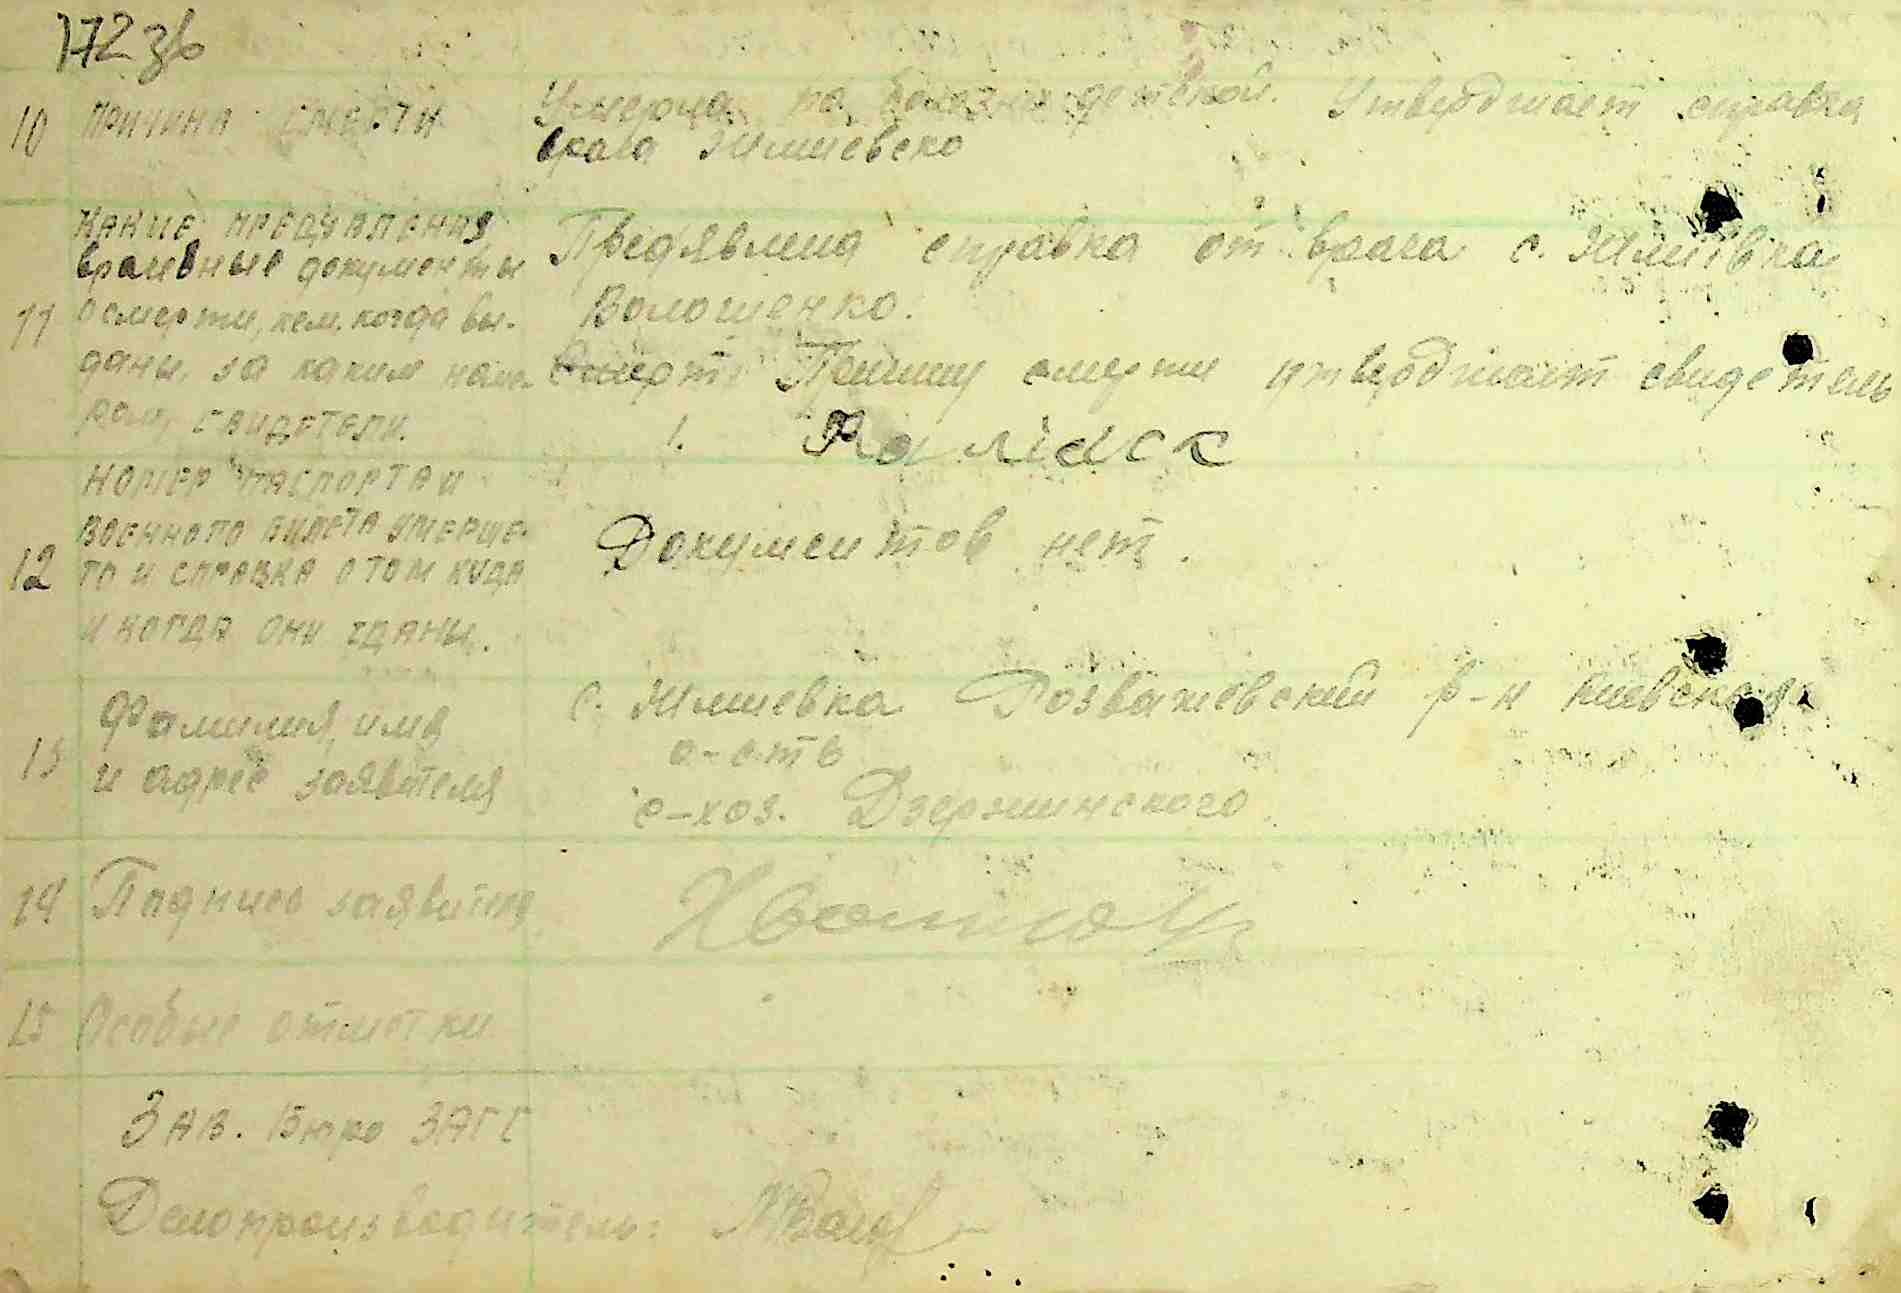 172 зв
10 Причина смерти
Умерла по болезни детской. Утверджает справка
врача
11 какие предявлення
врачебные документы
о смерти, кем, когда вы-
даны, за каким номе-
ром, свидетели.
Предявлена справка от врача с.
Волошенко.
Причину смерти утверджает свидетель
1.
12 номер паспорта и
военного билета умерше-
го и справка о том куда
и когда они сданы.
Документов нет.
13 Фамилия, имя
и адрес заявителя
с. Розважевский р-н Киевская
о-сть
с-хоз. Дзержинского.
14 Подпись заявителя
15 Особые отметки
Зав. Бюро ЗАГС
Делопроизводитель: